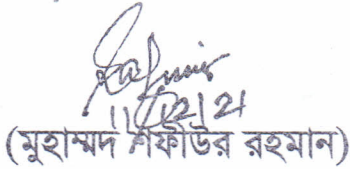 11/12/21
(মুহাম্মদ শফীউর রহমান)